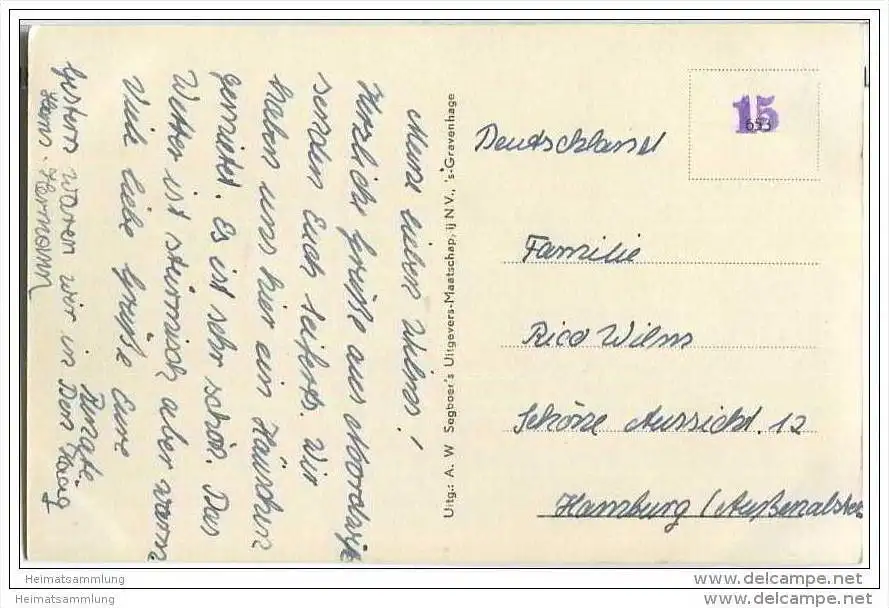 Meine lieben Wilms!
Herzliche Grüße aus Noordwijk
senden Euch Seiferts. Wir
haben uns hier ein Häuschen
gemietet. Es ist sehr schön. Das
Wetter ist stürmisch aber warm
Viele liebe Grüße Eure
Renate.
Gestern waren wir in Den Haag
Hans-Hermann
Uitg.: A. W. Segboer's Uitgevers-Maatschappij N.V., 's-Gravenhage
15
653
Deutschland
Familie
Rico Wilms
Schöne Aussicht. 12
Hamburg (Außenalster
Heimatsammlung
www.delcampe.net
Heimatsammlung
www.delcampe.net